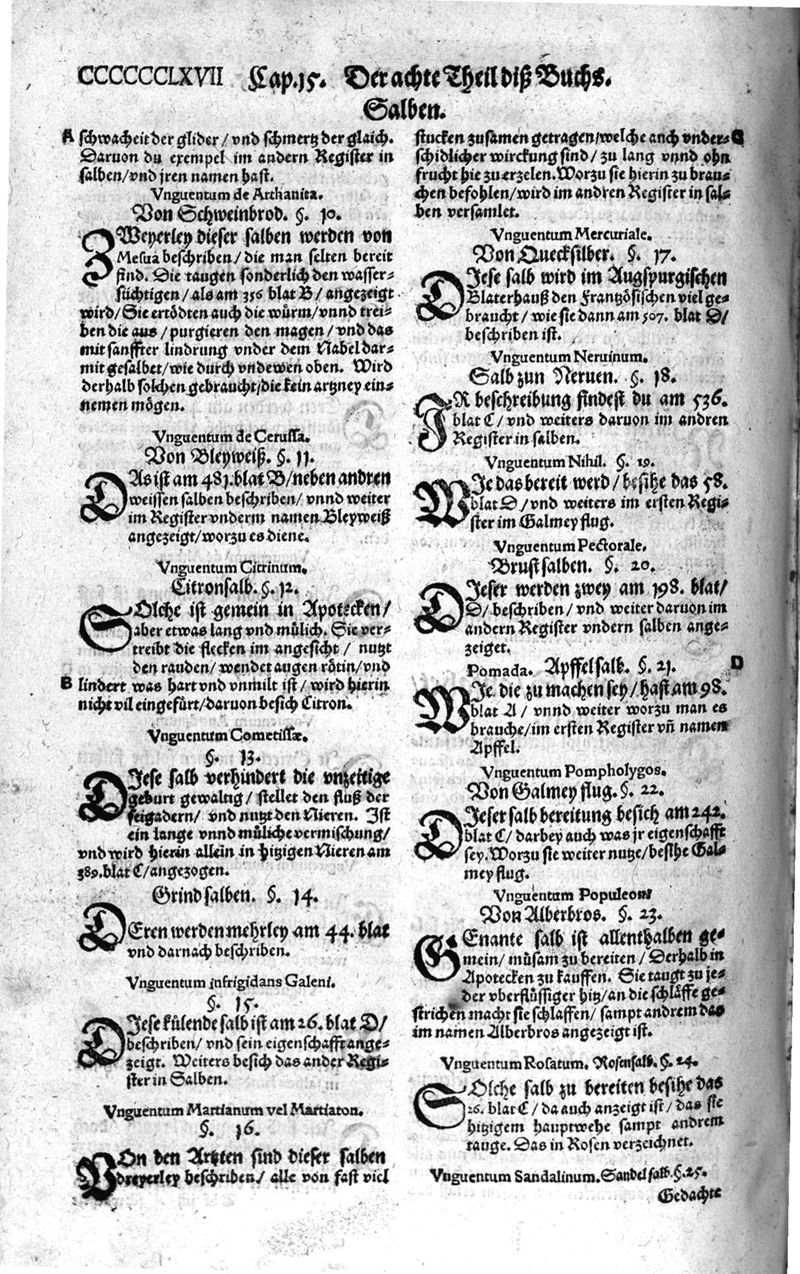 CCCCCCLXVII Cap.15. Der achte Theil diß Buchs.
Salben.
A schwacheit der glider/ vnd schmertz der glaich.
Daruon du exempel im andern Register in
salben/vnd jren namen hast.
Vnguentum de Arthanita.
Von Schweinbrod. §. 10.
ZWeyerley dieser salben werden von
Mesua beschriben/ die man selten bereit
find. Die taugen sonderlich den wasser-
süchtigen/ als am 356 blat B/ angezeigt
wird/ Sie ertödten auch die würm/ vnnd trei-
ben die aus/ purgieren den magen/ vnd das
mit sanffter lindrung vnder dem Nabel dar-
mit gesalbet/ wie durch vndewen oben. Wird
derhalb solchen gebraucht/ die kein artzney ein-
nemen mögen.
Vnguentum de Cerussa.
Von Bleyweiß. §. 11.
DAs ist am 481. blat B/ neben andren
weissen salben beschriben/ vnnd weiter
im Register vnderm namen Bleyweiß
angezeigt/ worzu es diene.
Vnguentum Citrinum.
Citronsalb. §. 12.
SOlche ist gemein in Apotecken/
aber etwas lang vnd mülich. Sie ver-
treibt die flecken im angesicht/ nutzt
den rauden/ wendet augen rötin/ vnd
B lindert was hart vnd vnmilt ist/ wird hierin
nicht vil eingefürt/ daruon besich Citron.
Vnguentum Cometissæ.
§. 13.
DIese salb verhindert die vnzeitige
geburt gewaltig/ stellet den fluß der
feigadern/ vnd nutzt den Nieren. Ist
ein lange vnnd müliche vermischung/
vnd wird hierin allein in hitzigen Nieren am
389. blat C/ angezogen.
Grindsalben. §. 14.
DEren werden mehrley am 44. blat
vnd darnach beschriben.
Vnguentum infrigidans Galeni.
§. 15.
DIese külende salb ist am 26. blat D/
beschriben/ vnd sein eigenschafft ange-
zeigt. Weiters besich das ander Regi-
ster in Salben.
Vnguentum Martianum vel Martiaton.
§. 16.
VOn den Artzten sind dieser salben
dreyerley beschriben/ alle von fast viel
stucken zusamen getragen/ welche auch vnder- C
schidlicher wirckung sind/ zu lang vnnd ohn
frucht hie zu erzelen. Worzu sie hierin zu brau-
chen befohlen/ wird im andren Register in sal-
ben versamlet.
Vnguentum Mercuriale.
Von Quecksilber. §. 17.
DIese salb wird im Augspurgischen
Blaterhauß den Frantzösischen viel ge-
braucht/ wie sie dann am 507. blat D/
beschriben ist.
Vnguentum Neruinum.
Salb zun Neruen. §. 18.
IR beschreibung findest du am 536.
blat C/ vnd weiters daruon im andren
Register in salben.
Vnguentum Nihil. §. 19.
WIe das bereit werd/ besihe das 58.
blat D/ vnd weiters im ersten Regi-
ster im Galmey flug.
Vnguentum Pectorale.
Brust salben. §. 20.
DIeser werden zwey am 198. blat/
D/ beschriben/ vnd weiter daruon im
andern Register vndern salben ange-
zeiget.
Pomada. Apffelsalb. §. 21. D
WIe die zu machen sey/ hast am 98.
blat A/ vnnd weiter worzu man es
brauche/ im ersten Register vñ namen
Apffel.
Vnguentum Pompholygos.
Von Galmey flug. §. 22.
DIeser salb bereitung besich am 242.
blat C/ darbey auch was jr eigenschafft
sey. Worzu sie weiter nutze/ besihe Gal-
mey flug.
Vnguentum Populeon
Von Alberbros. §. 23.
GEnante salb ist allenthalben ge-
mein/ müsam zu bereiten/ Derhalb in
Apotecken zu kauffen. Sie taugt zu je-
der vberflüssiger hitz/ an die schläffe ge-
strichen macht sie schlaffen/ sampt andrem das
im namen Alberbros angezeigt ist.
Vnguentum Rosatum. Rosensalb. §. 24.
SOlche salb zu bereiten besihe das
26. blat C/ da auch anzeigt ist/ das sie
hitzigem hauptwehe sampt andrem
tauge. Das in Rosen verzeichnet.
Vnguentum Sandalinum. Sandel salb. §. 25.
Gedachte